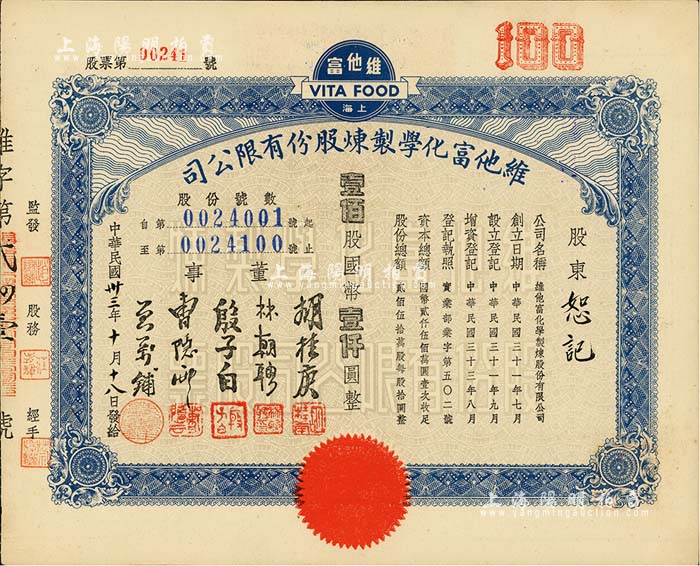 上海陽明拍賣
www.yangmingauction.com
股票第 00241 號
100
富他維
VITA FOOD
海上
司公限有份股煉製學化富他維
股東 恕記
公司名稱 維他富化學製煉股份有限公司
創立日期 中華民國三十一年七月
設立登記 中華民國三十一年九月
增資登記 中華民國三十三年八月
登記執照 實業部業字第五〇二號
資本總額 國幣貳仟伍佰萬圓壹次收足
股份總額 貳佰伍拾萬股每股拾圓整
壹佰股國幣壹仟圓整
股份號數
自第 0024001 號起
至第 0024100 號止
董事
胡桂庚
林朝聘
殷子白
曹隱邨
中華民國卅三年十月十八日發給
監發
股務
經手
維字第
號
上海陽明拍賣
www.yangmingauction.com
上海陽明拍賣
www.yangmingauction.com